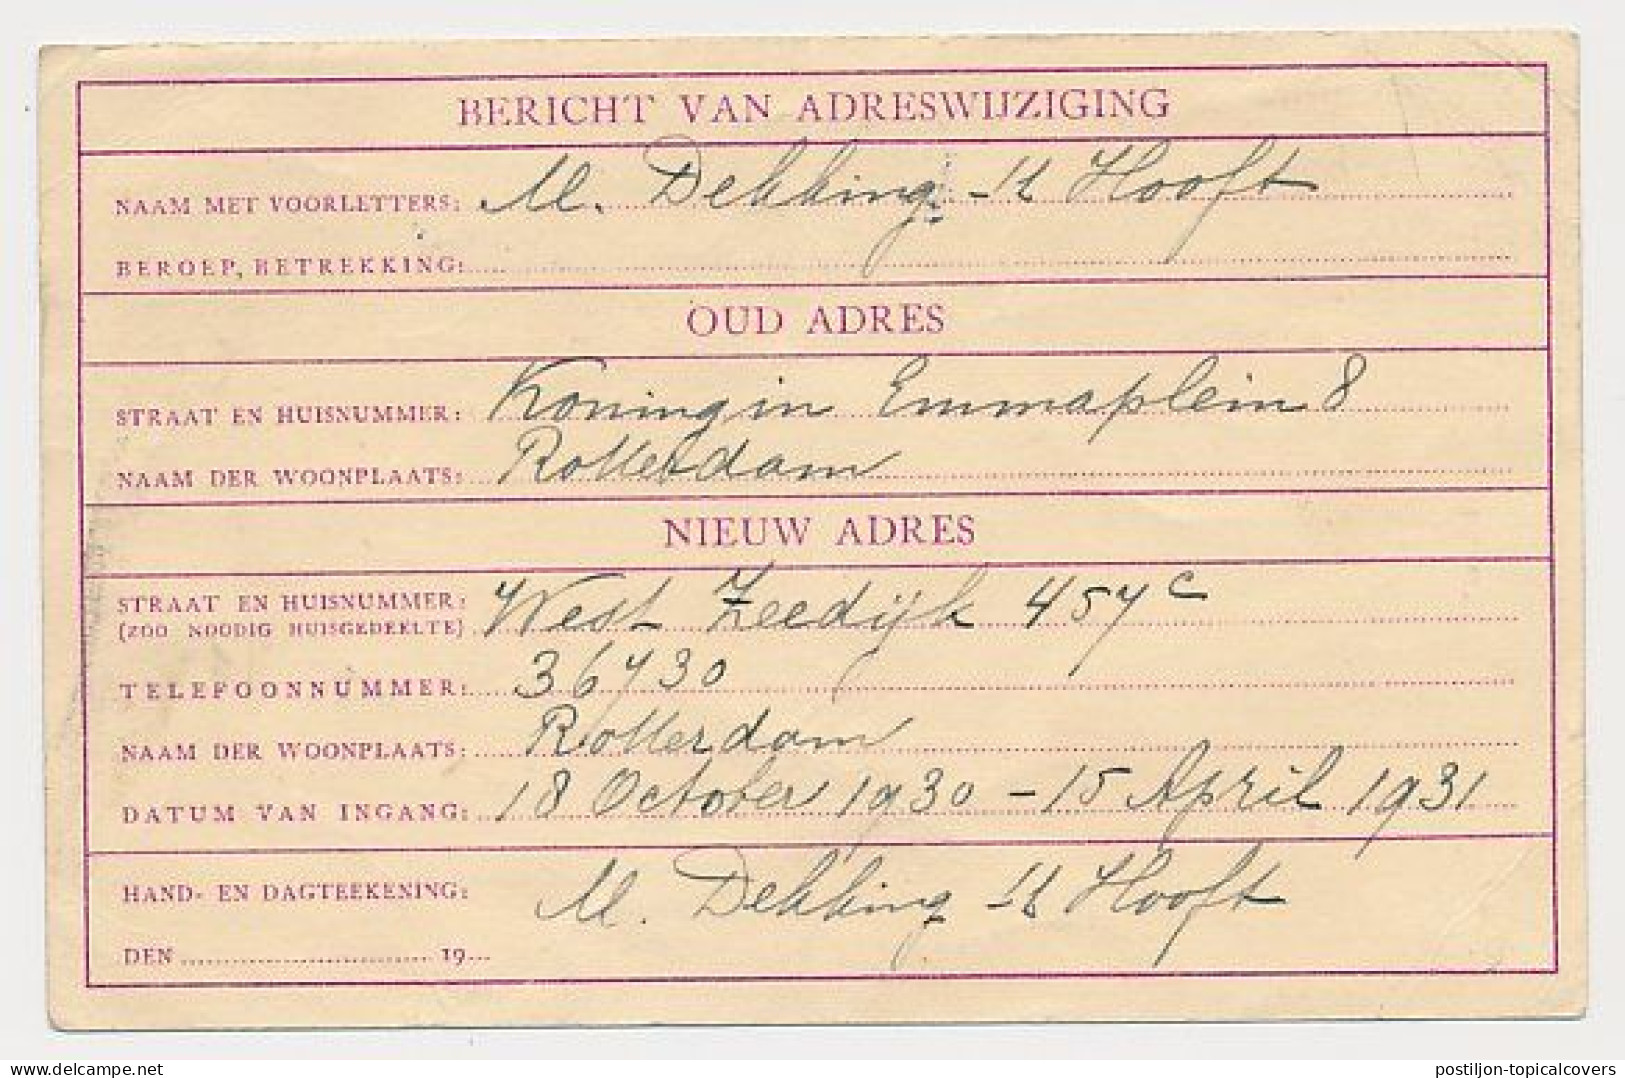 BERICHT VAN ADRESWIJZIGING
NAAM MET VOORLETTERS: M. Dekking - 't Hooft
BEROEP, BETREKKING:
OUD ADRES
STRAAT EN HUISNUMMER: Koningin Emmaplein 8
NAAM DER WOONPLAATS: Rotterdam
NIEUW ADRES
STRAAT EN HUISNUMMER: West Zeedijk 457c
(ZOO NOODIG HUISGEDEELTE)
TELEFOONNUMMER: 36730
NAAM DER WOONPLAATS: Rotterdam
DATUM VAN INGANG: 18 October 1930 - 15 April 1931
HAND- EN DAGTEEKENING: M. Dekking - 't Hooft
DEN .............................. 19...
Delcampe.net
postiljon-topicalcovers